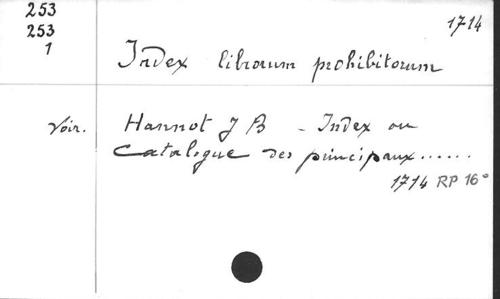 253
253
1
1714
Index librorum prohibitorum
Voir. Hannot J B - Index ou
Catalogue des principaux......
1714 RP 16°